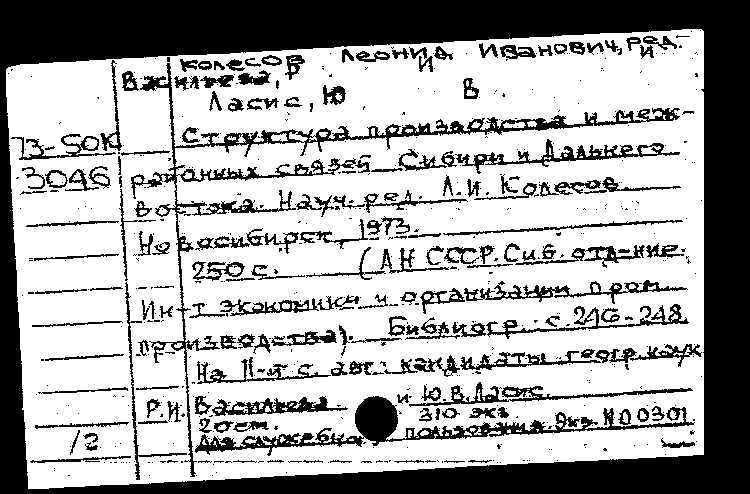 Колесов Леонид Иванович, ред.
Васильева, Р И
Ласис, Ю В
73-SOK Структура производства и меж-
3046 районных связей Сибири и Дальнего
Востока. Науч. ред. Л.И. Колесов.
Новосибирск, 1973.
250 с. (АН СССР. Сиб. отд-ние.
Ин-т экономики и организации пром.
производства). Библиогр.: с. 246-248.
На II-й с. авт.: кандидаты геогр. наук
Р.И. Васильева и Ю.В. Ласис.
20 см. 310 экз.
/2 Для служебн. пользования. Экз. N00301